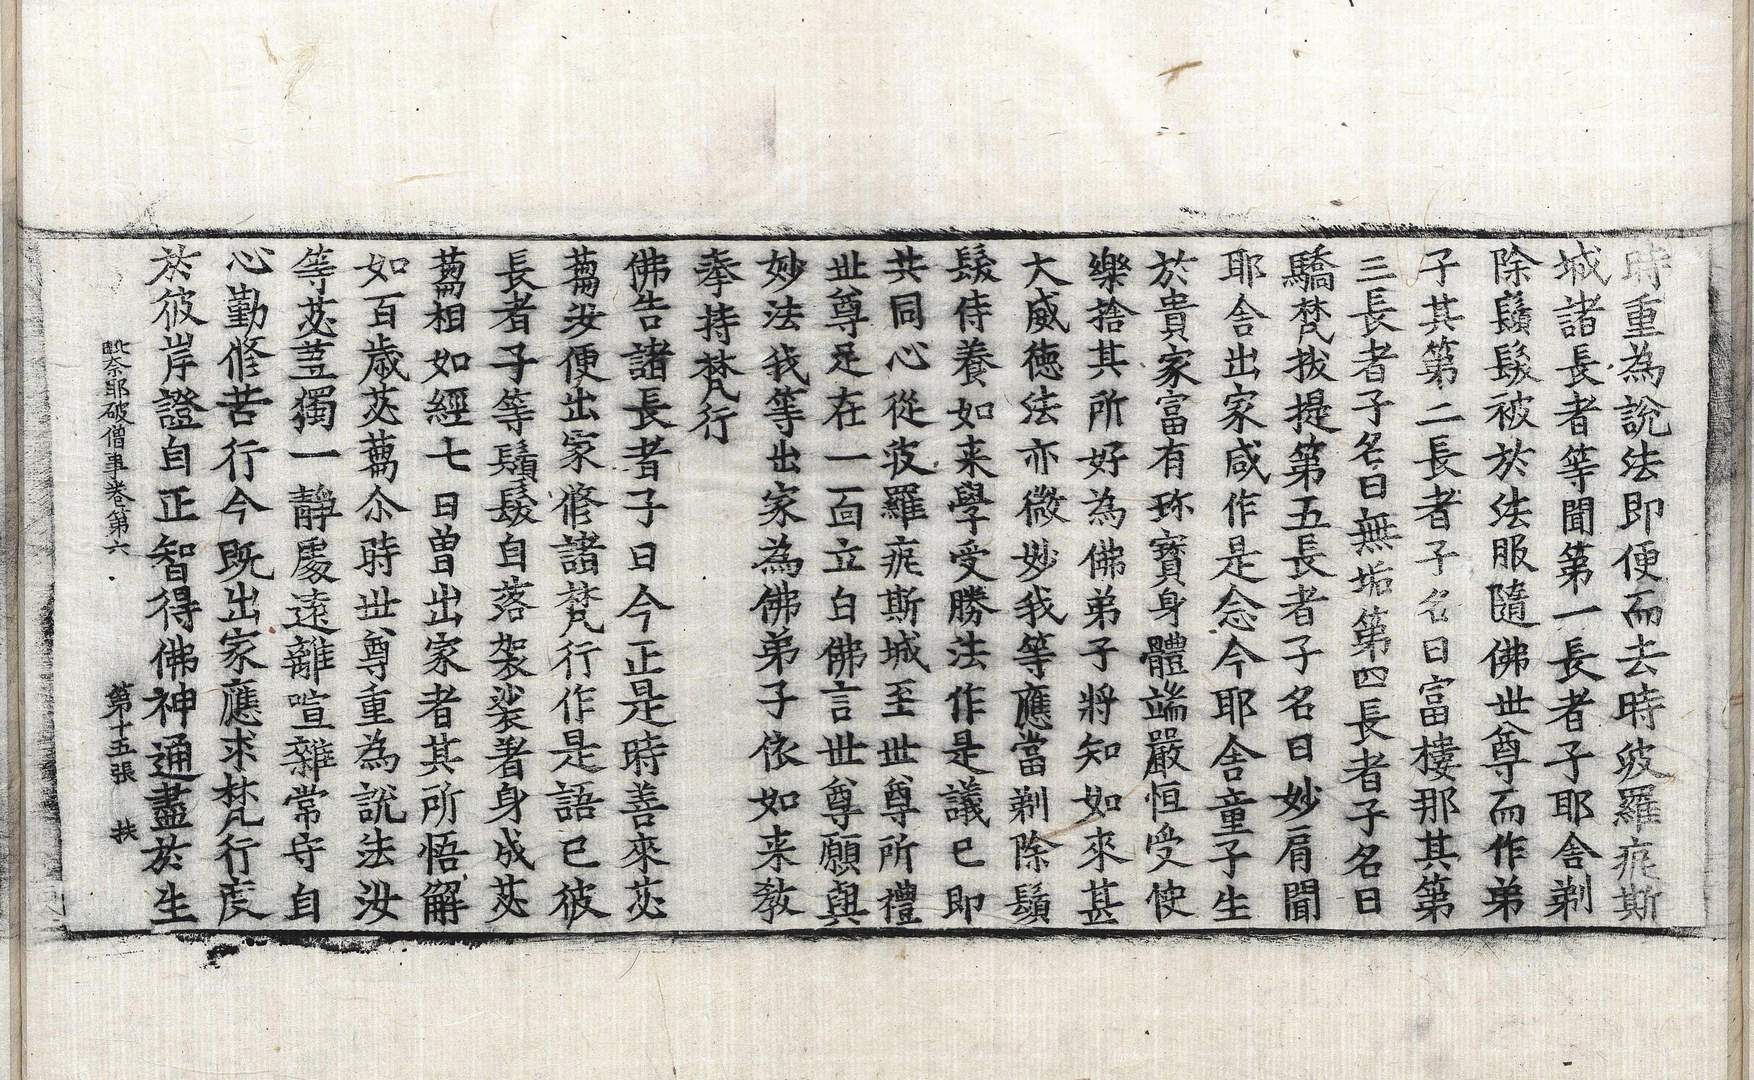 時重為說法即便而去時波羅痆斯
城諸長者等聞第一長者子耶舍剃
除鬚髮被於法服隨佛世尊而作弟
子其第二長者子名曰富樓那其第
三長者子名曰無垢第四長者子名曰
驕梵拔提第五長者子名曰妙肩聞
耶舍出家咸作是念今耶舍童子生
於貴家富有珎寶身體端嚴恒受使
樂捨其所好為佛弟子將知如來甚
大威德法亦微妙我等應當剃除鬚
髮侍養如来學受勝法作是議已即
共同心從波羅痆斯城至世尊所禮
世尊足在一面立白佛言世尊願與
妙法我等出家為佛弟子依如来教
奉持梵行
佛告諸長者子曰今正是時善來苾
蒭汝便出家修諸梵行作是語已彼
長者子等鬚髮自落袈裟著身成苾
蒭相如經七日曾出家者其所悟解
如百歲苾蒭尒時世尊重為說法汝
等苾蒭獨一靜處遠離喧雜常守自
心勤修苦行今既出家應求梵行度
於彼岸證自正智得佛神通盡於生
毗奈耶破僧事卷第六 第十五張 扶